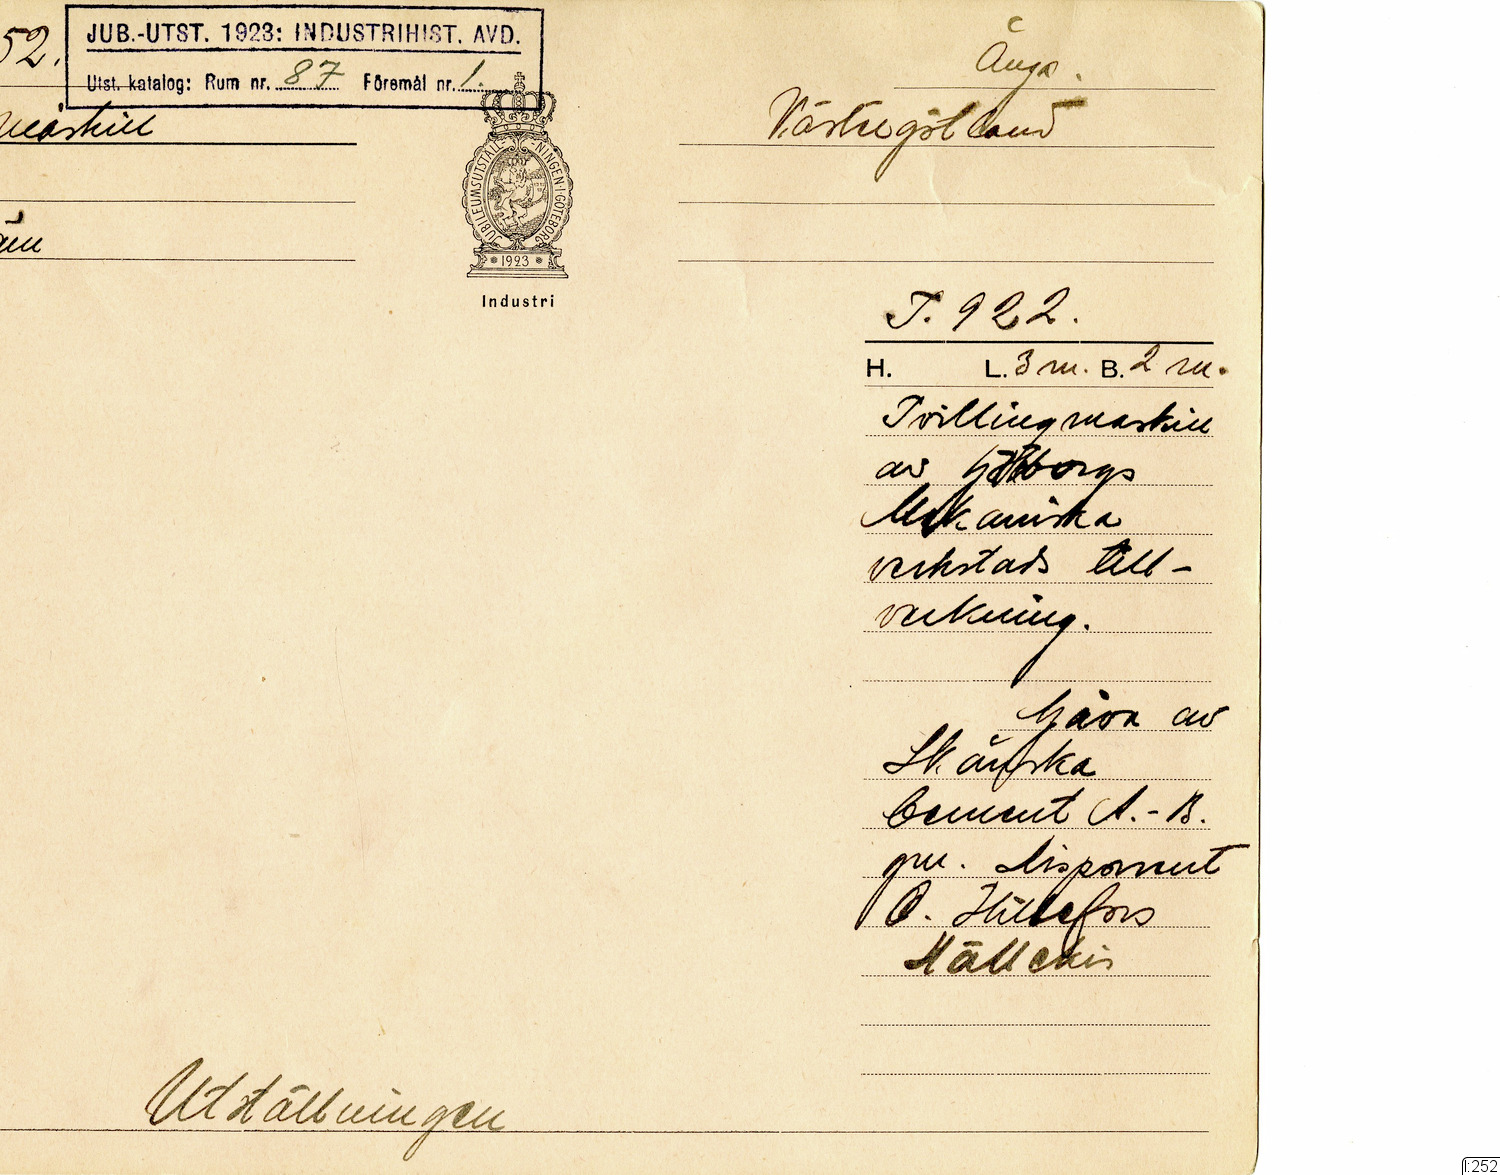 52.
JUB.-UTST. 1923: INDUSTRIHIST. AVD.
Utst. katalog: Rum nr. 87 Föremål nr. 1.
maskin
Ånga.
Västergötland
JUBILEUMSUTSTÄLL-NINGEN·I·GÖTEBORG
1923
Industri
T. 922.
H. L. 3 m. B. 2 m.
Tvillingmaskin
av Göteborgs
Mekaniska
verkstads till-
verkning.
Gåva av
Skånska
Cement A.-B.
gm. Disponent
O. Hällefors
Hällekis
Utställningen
:252